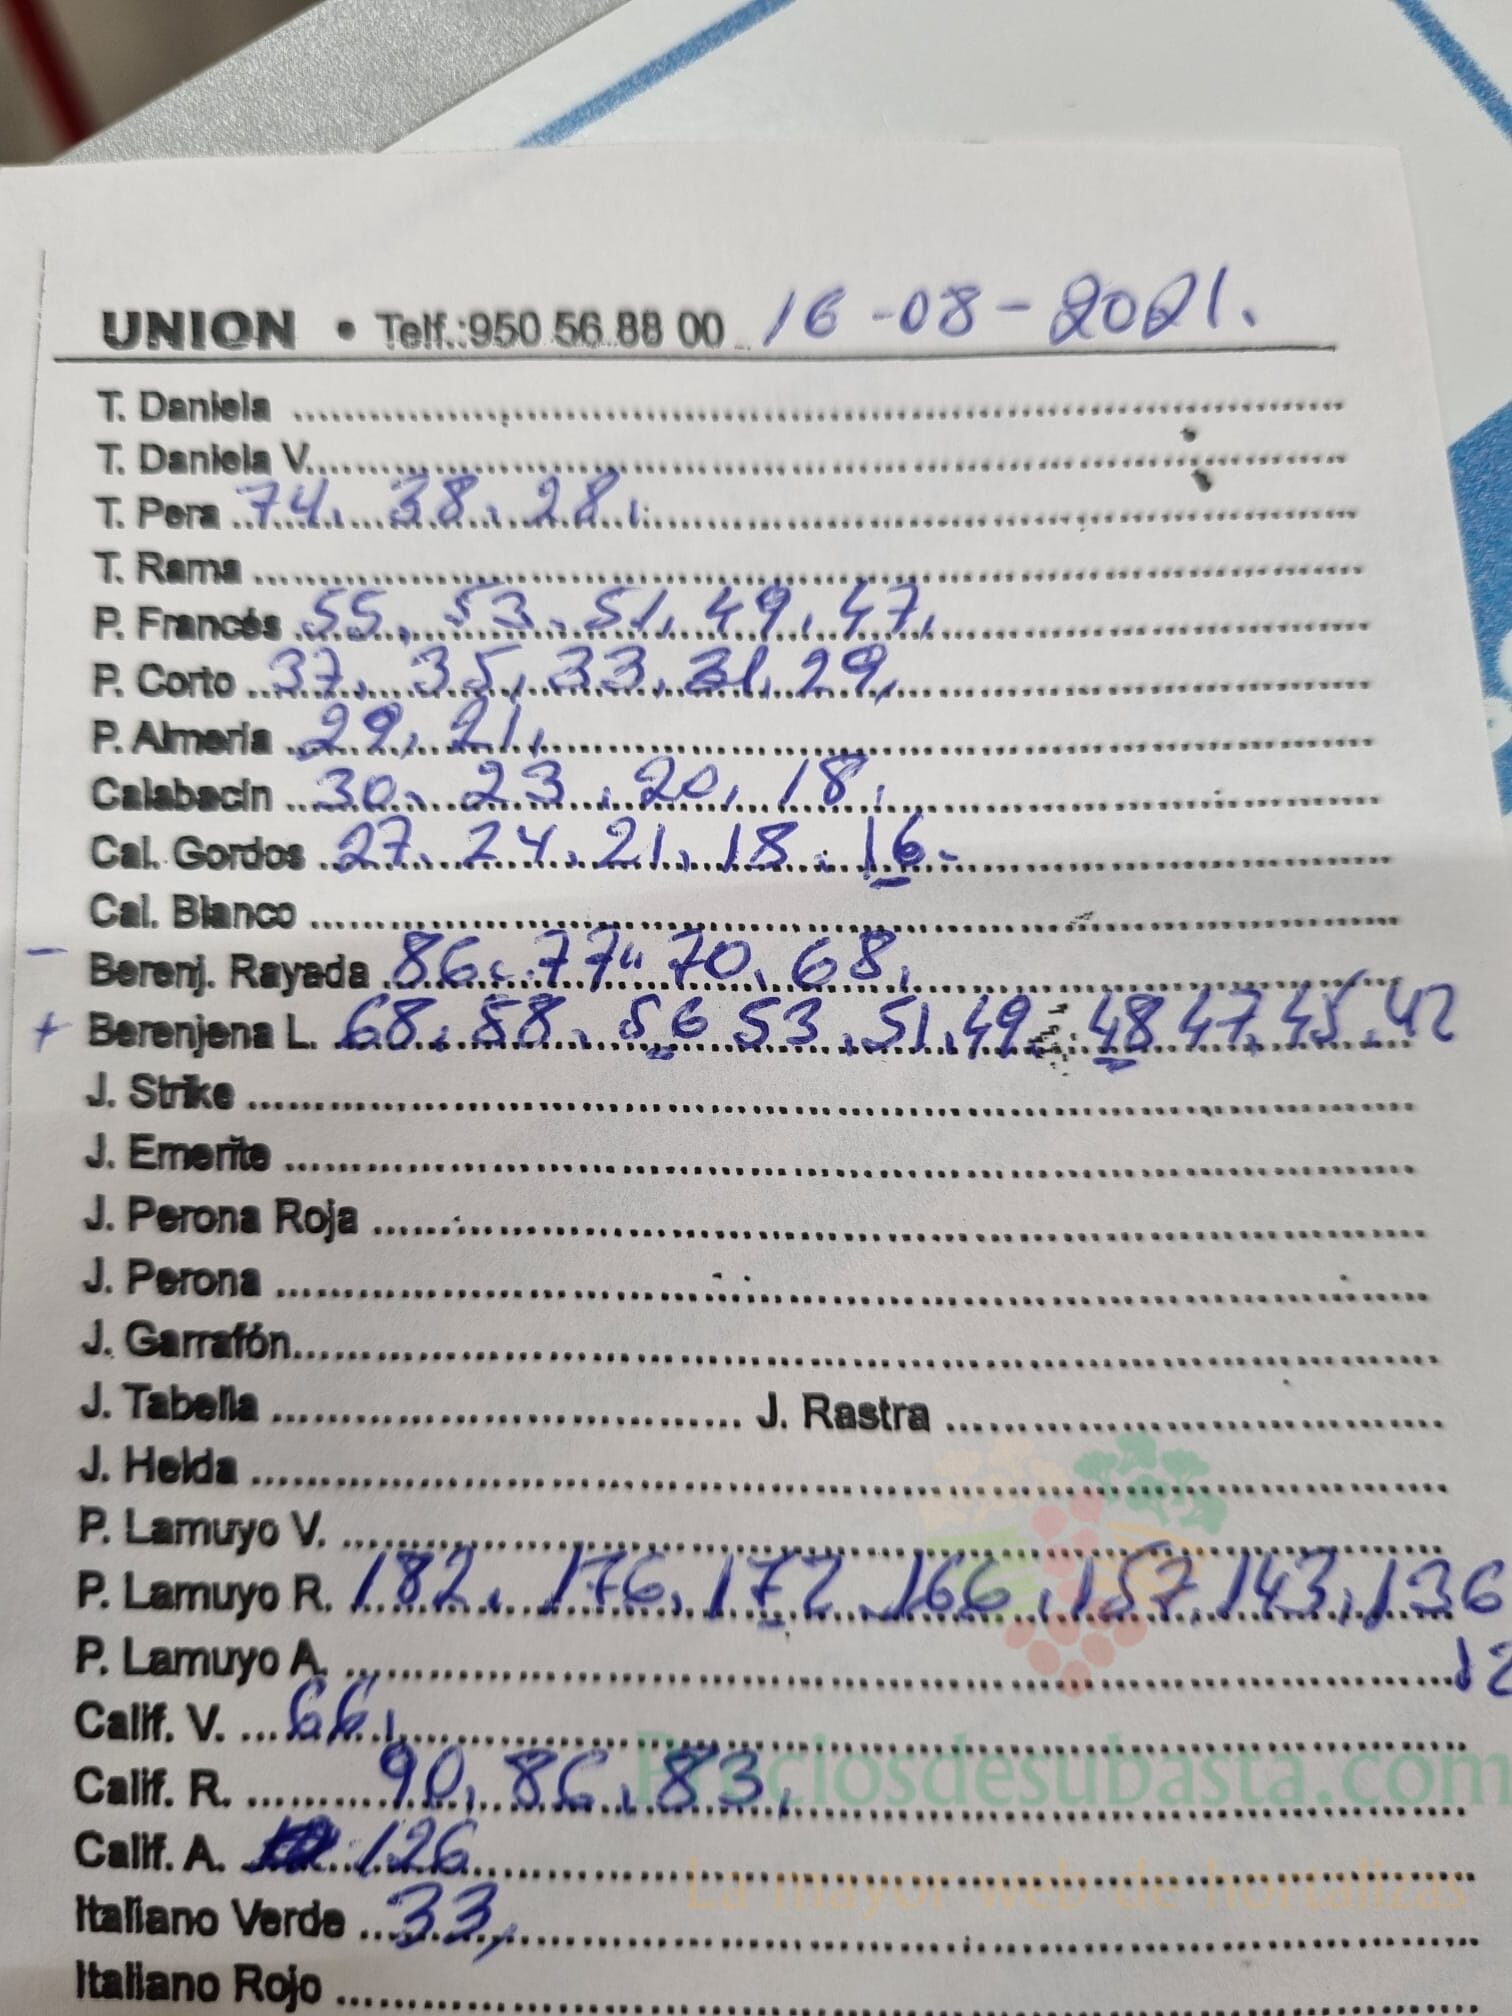 UNION • Telf.:950 56 88 00 16-08-2021.
T. Daniela
T. Daniela V.
T. Pera 74, 38, 28,
T. Rama
P. Francés 55, 53, 51, 49, 47,
P. Corto 37, 35, 33, 31, 29,
P. Almeria 29, 21,
Calabacin 30, 23, 20, 18,
Cal. Gordos 27, 24, 21, 18, 16.
Cal. Blanco
- Berenj. Rayada 86, 77" 70, 68,
+ Berenjena L. 68, 58, 56 53, 51, 49 48 47, 45, 42
J. Strike
J. Emerite
J. Perona Roja
J. Perona
J. Garrafón
J. Tabella J. Rastra
J. Helda
P. Lamuyo V.
P. Lamuyo R. 182, 176, 172, 166, 157, 143, 136
P. Lamuyo A. 12
Calif. V. 66,
Calif. R. 90, 86, 83,
Preciosdesubasta.com
Calif. A. 126
La mayor web de hortalizas
Italiano Verde 33,
Italiano Rojo